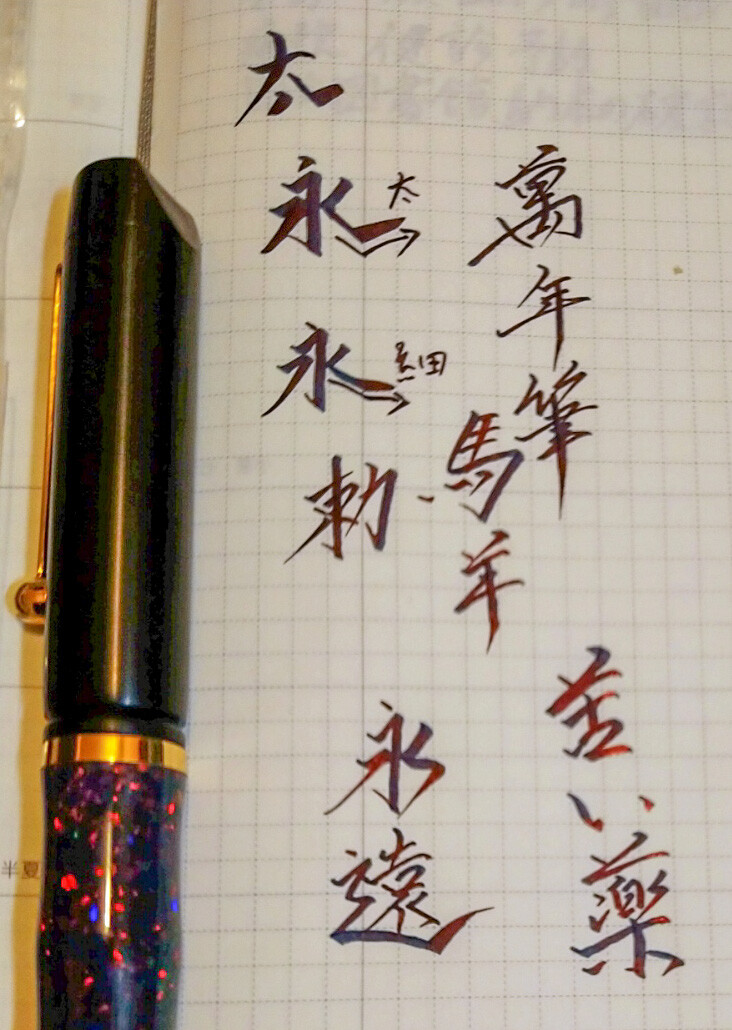 太
永 太
永 細
勅
萬年筆
馬
羊
苦い薬
永遠